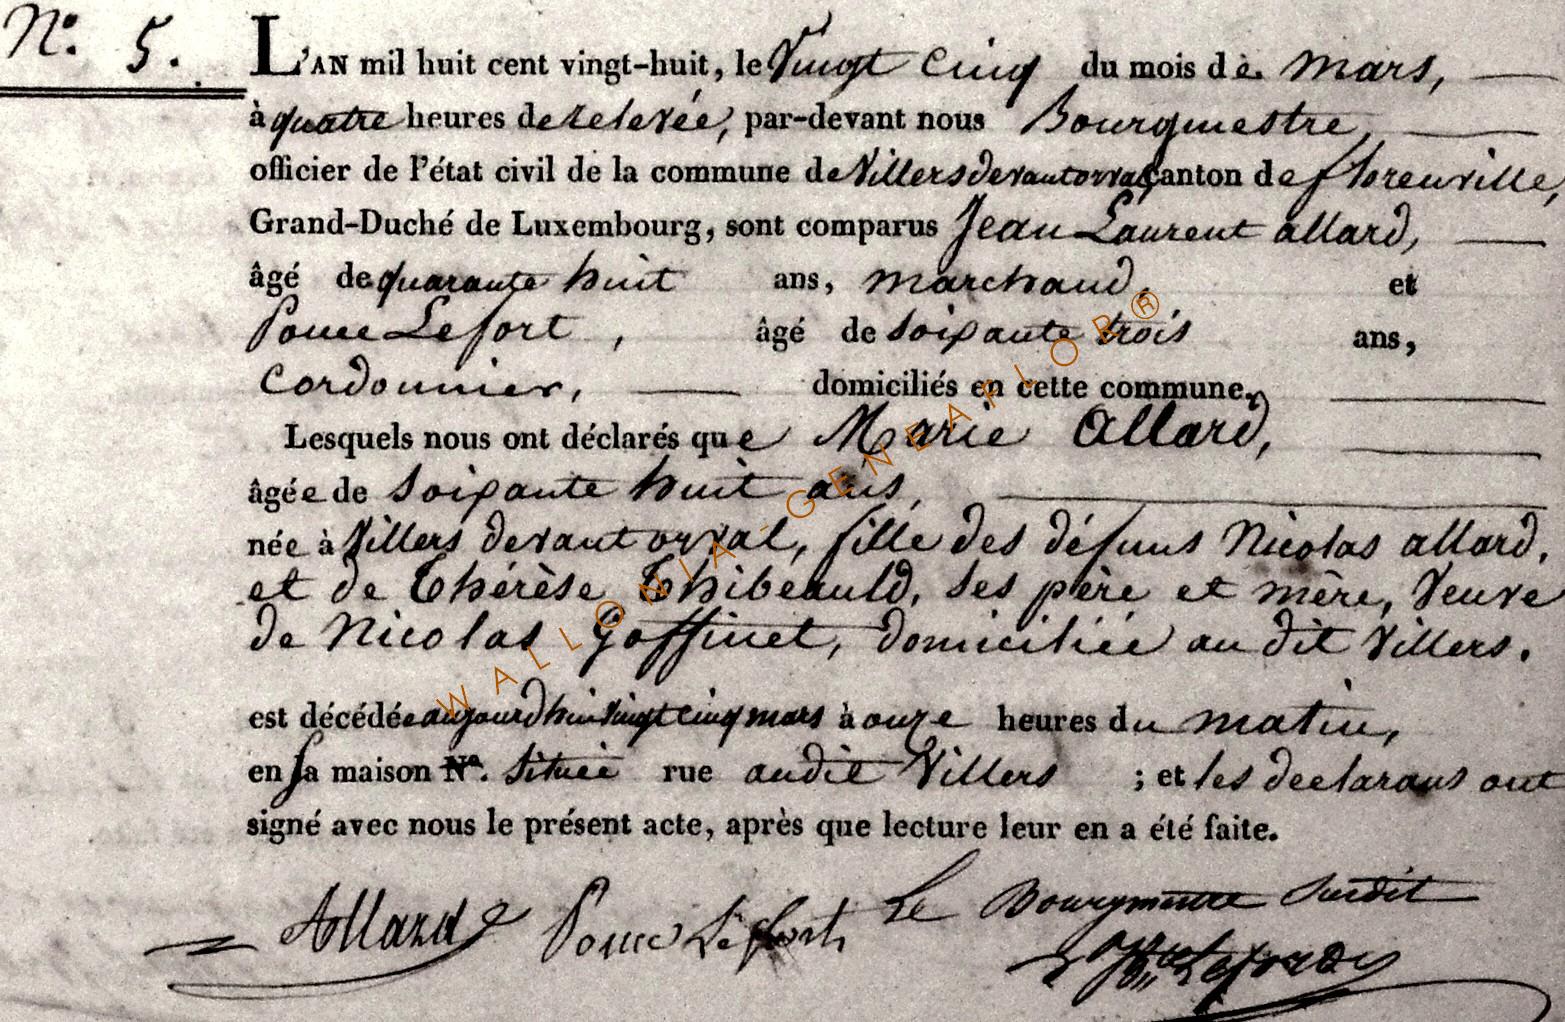 N.º 5.
L'AN mil huit cent vingt-huit, le Vingt cinq du mois de mars,
à quatre heures de relevée, par-devant nous Bourgmestre,
officier de l'état civil de la commune de Villers devant orval, canton de florenville,
Grand-Duché de Luxembourg, sont comparus Jean Laurent allard,
âgé de quarante huit ans, marchand, et
Ponce Lefort, âgé de soixante trois ans,
Cordonnier, domiciliés en cette commune,
Lesquels nous ont déclarés que Marie Allard,
âgée de soixante huit ans,
née à Villers devant orval, fille des défuns Nicolas allard,
et de Thérèse Thibeauld, ses père et mère, Veuve
de Nicolas Goffinet, domiciliée au dit Villers.
est décédée aujourdhui vingt cinq mars à onze heures du matin,
en sa maison Nº. située rue audit Villers ; et les declarans ont
signé avec nous le présent acte, après que lecture leur en a été faite.
Allard Ponce Lefort Le Bourgmestre Susdit
WALLONIA-GENEAFLOR®